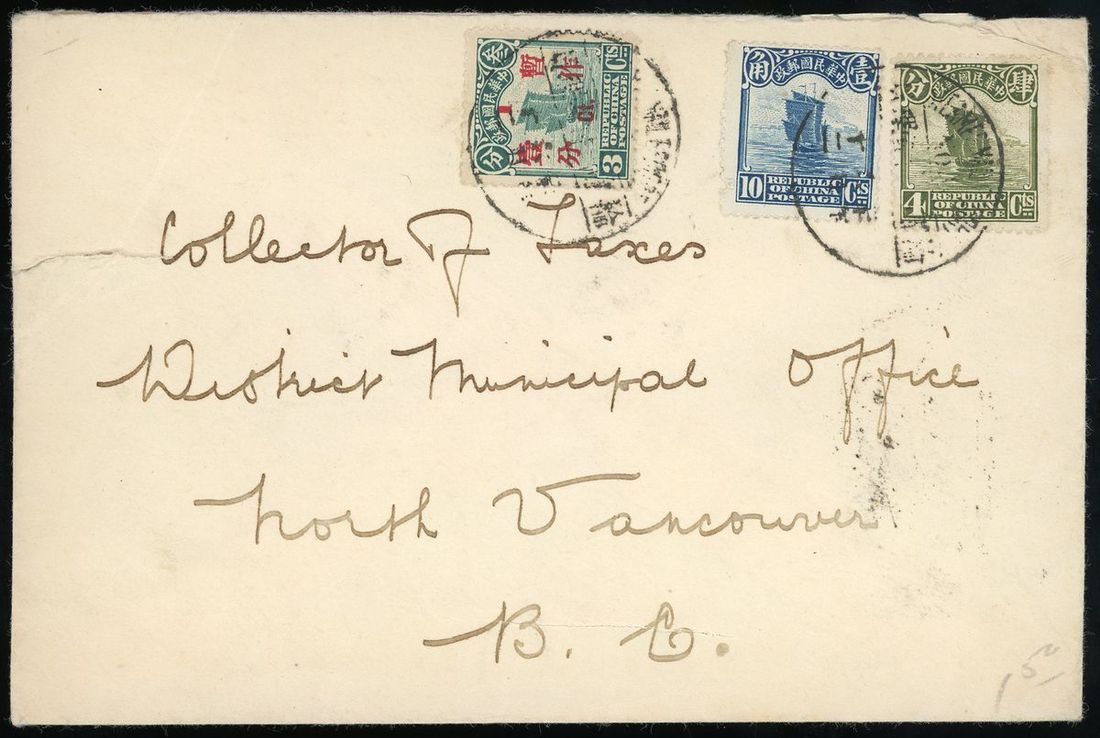 叁 中華民國郵政 分
暫作
1 ct
壹分
REPUBLIC
OF CHINA
POSTAGE
3 Cts
角 中華民國郵政 壹
10 REPUBLIC Cts
OF CHINA
POSTAGE
分 中華民國郵政 肆
4 REPUBLIC Cts
OF CHINA
POSTAGE
Collector of Taxes
District Municipal Office
North Vancouver
B. C.